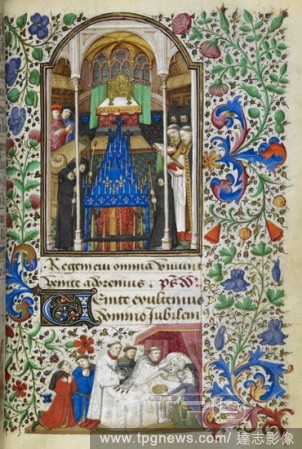 Regem cui omnia vivunt
venite adoremus. ps
Venite exultemus
domino Jubilem
www.tpgnews.com/ 達志影像